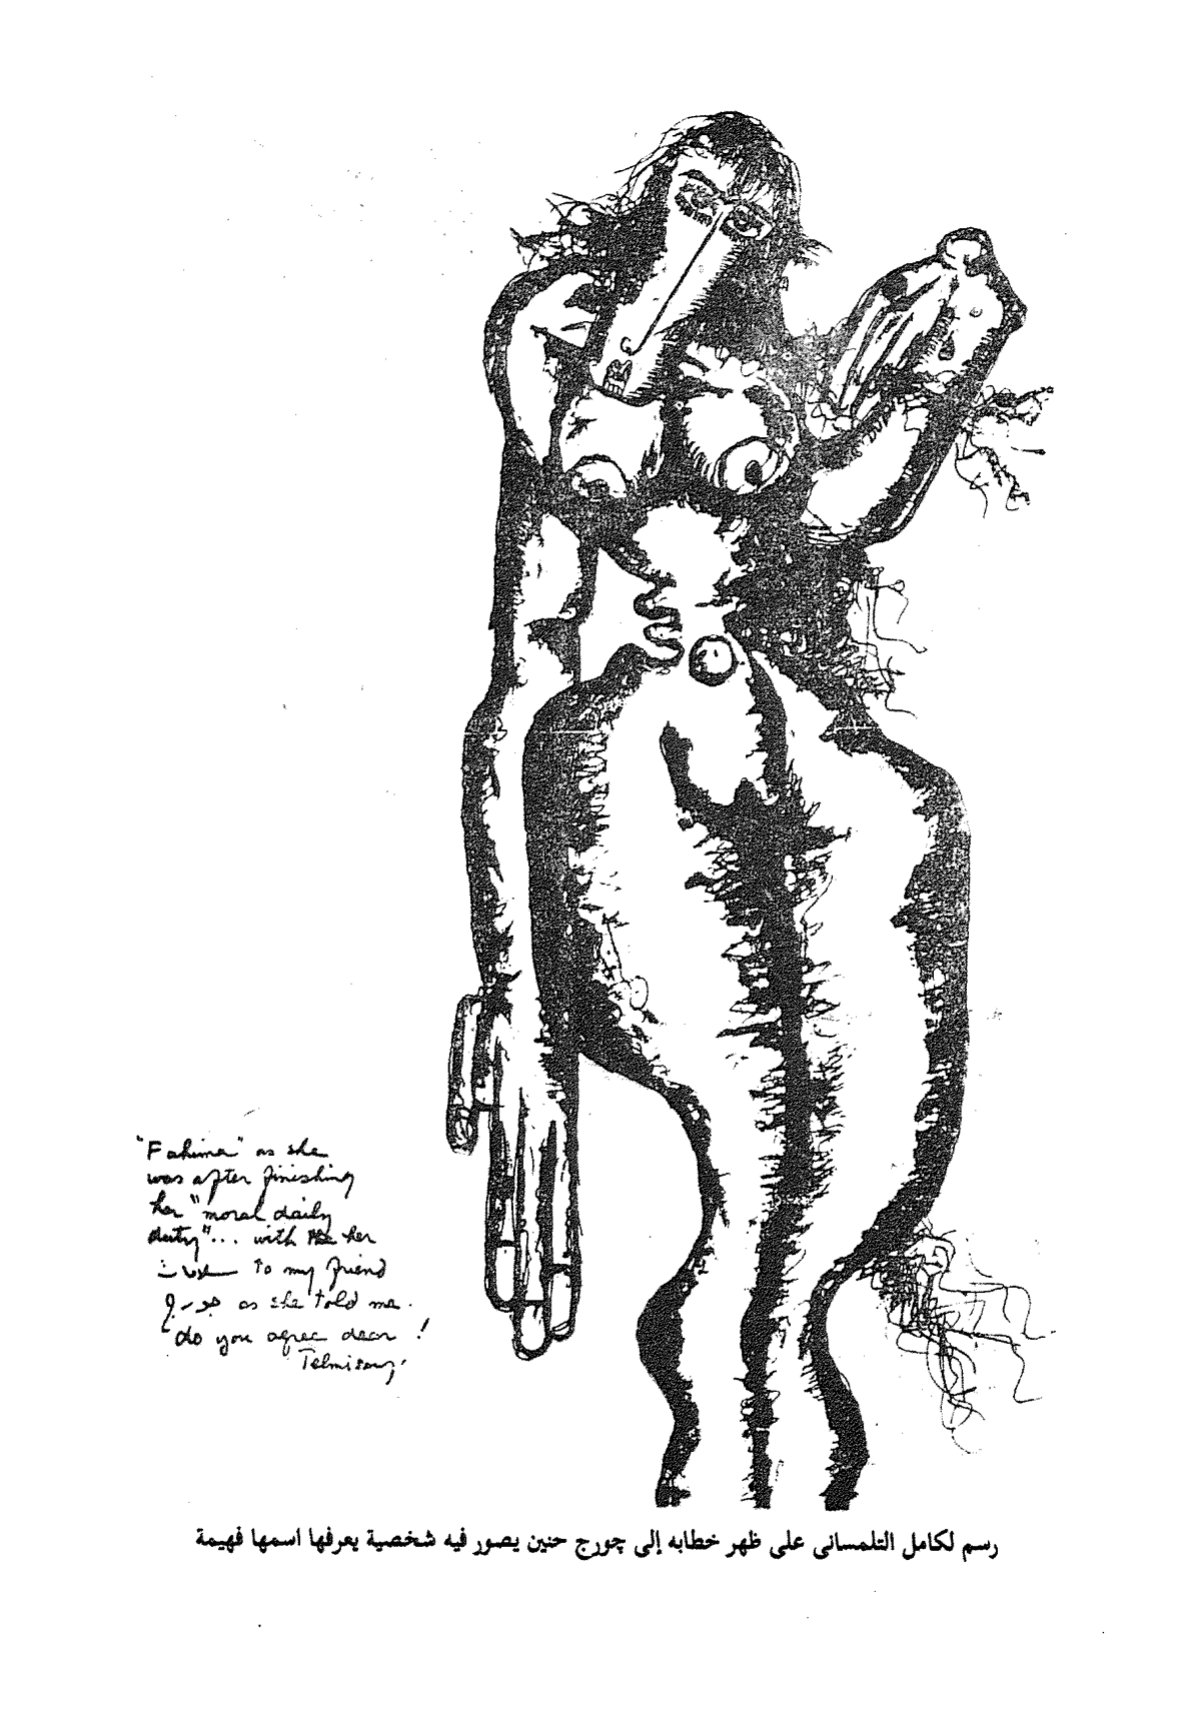 "Fahima" as she
was after finishing
her "moral daily
duty"... with the her
to my friend
جورج as she told me.
"do you agree dear!
Telmisany.
رسم لكامل التلمسانى على ظهر خطابه إلى چورج حنين يصور فيه شخصية يعرفها اسمها فهيمة